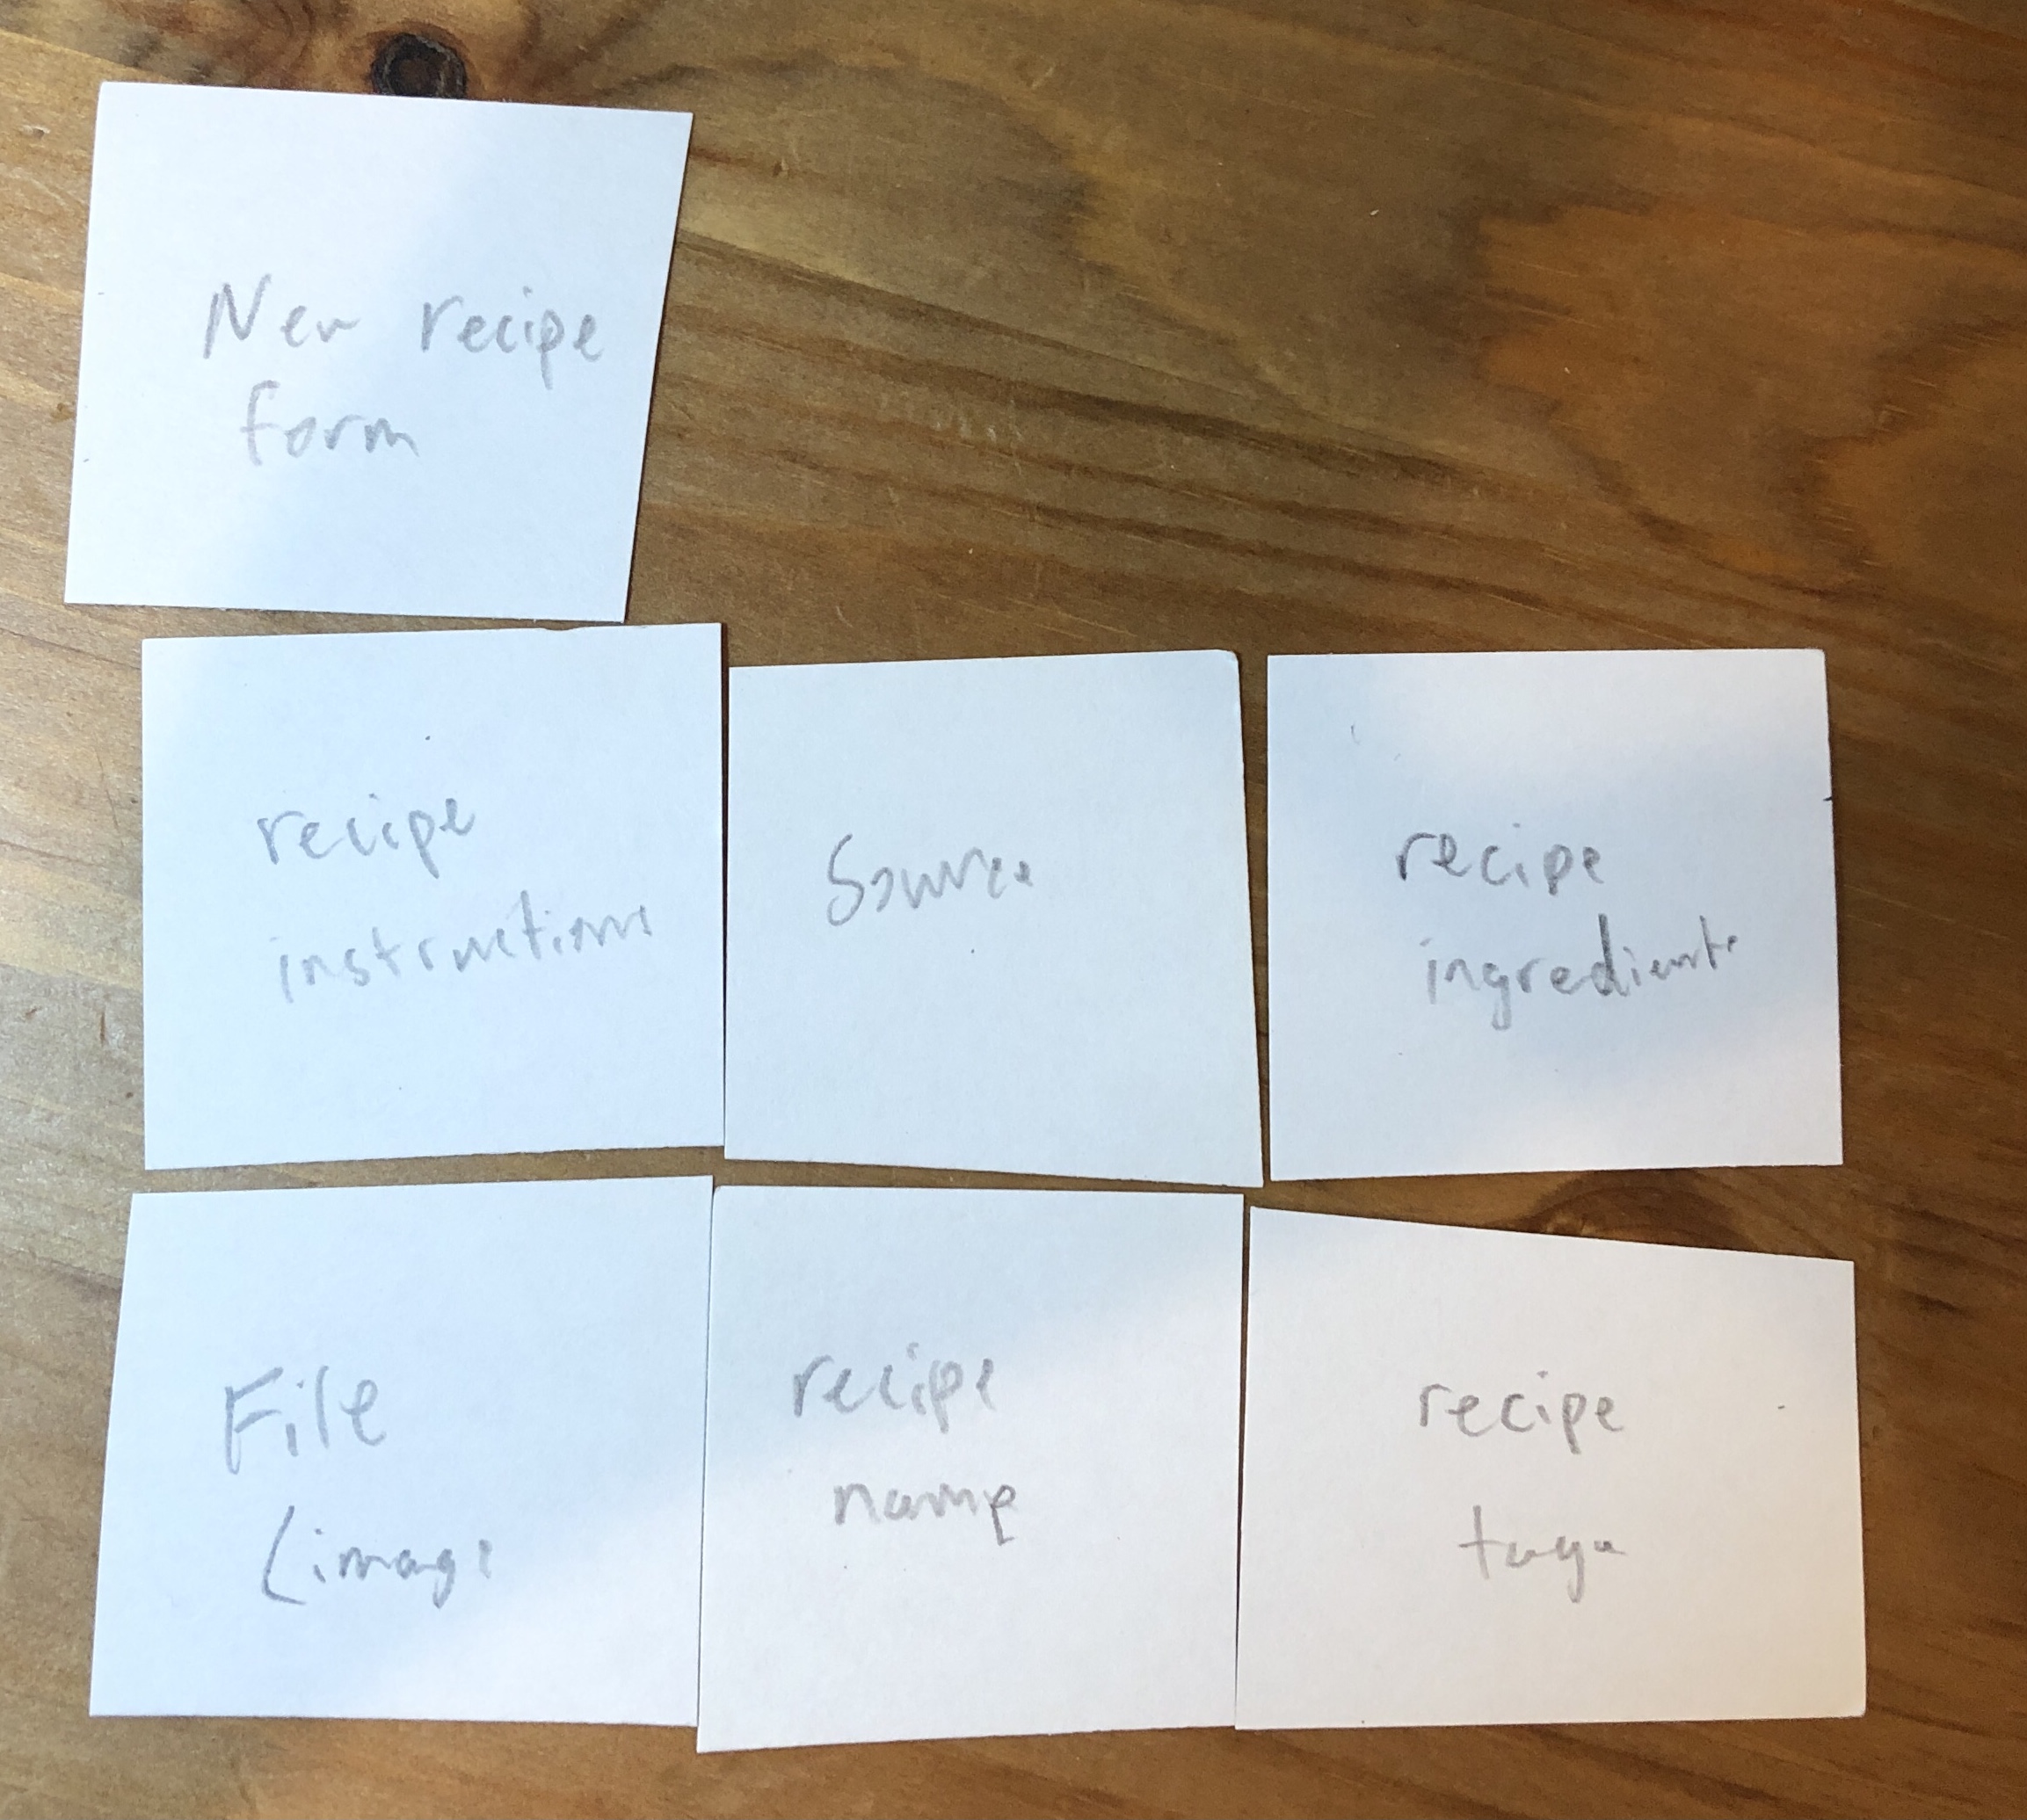 New recipe
form
recipe
instructions
Source
recipe
ingredients
File
(image
recipe
name
recipe
tags